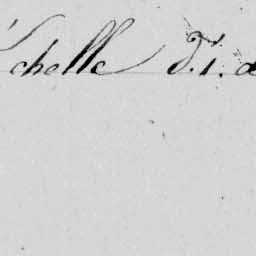 Échelle d. 1. à